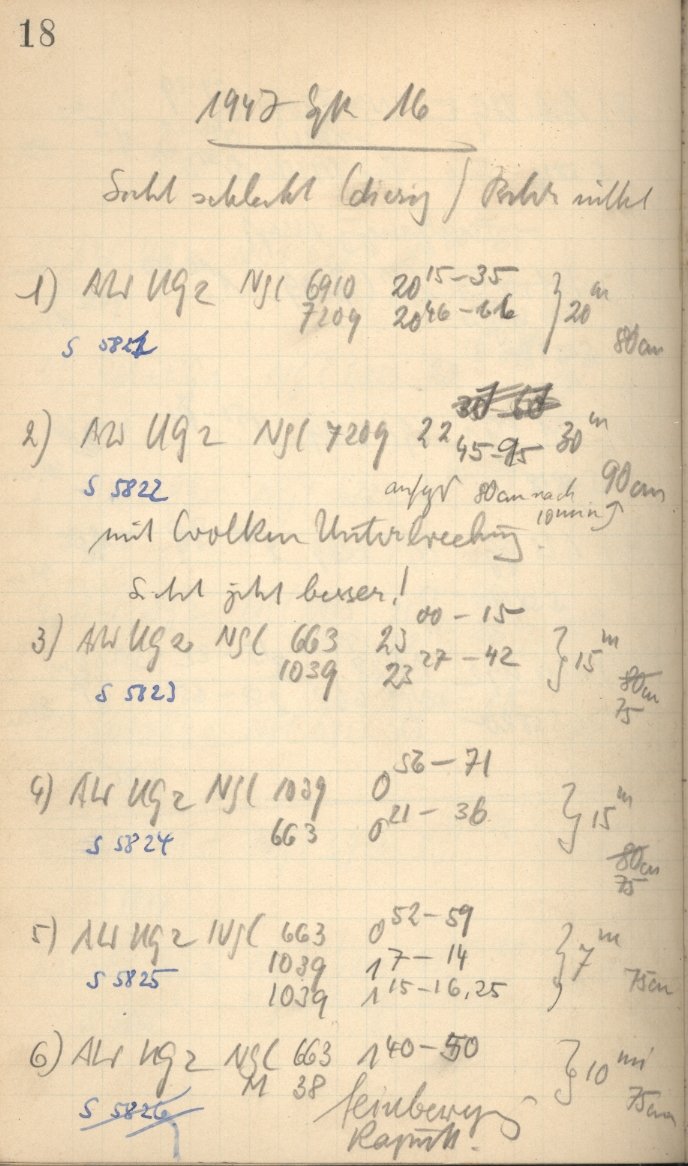 18
1947 Spt. 16
Sicht schlecht (diesig) Mitte
1) AW UG2 NGC 6910 20 15-35 } 20m
7209 20 46-66
S 5821 80cm
2) AW UG2 NGC 7209 22 45-95 30m
S 5822 80cm nach 10 min 90cm
mit Wolken Unterbrechung.
Sicht jetzt besser!
3) AW UG2 NGC 663 23 00-15 } 15m
1039 23 27-42
S 5823 80cm 75
4) AW UG2 NGC 1039 0 56-71 } 15m
663 0 21-36
S 5824 80cm 75
5) AW UG2 NGC 663 0 52-59 } 7m
1039 1 7-14
S 5825 75cm
1039 1 15-16,25
6) AW UG2 NGC 663 1 40-50 } 10 mi
M 38
S 5826 75cm